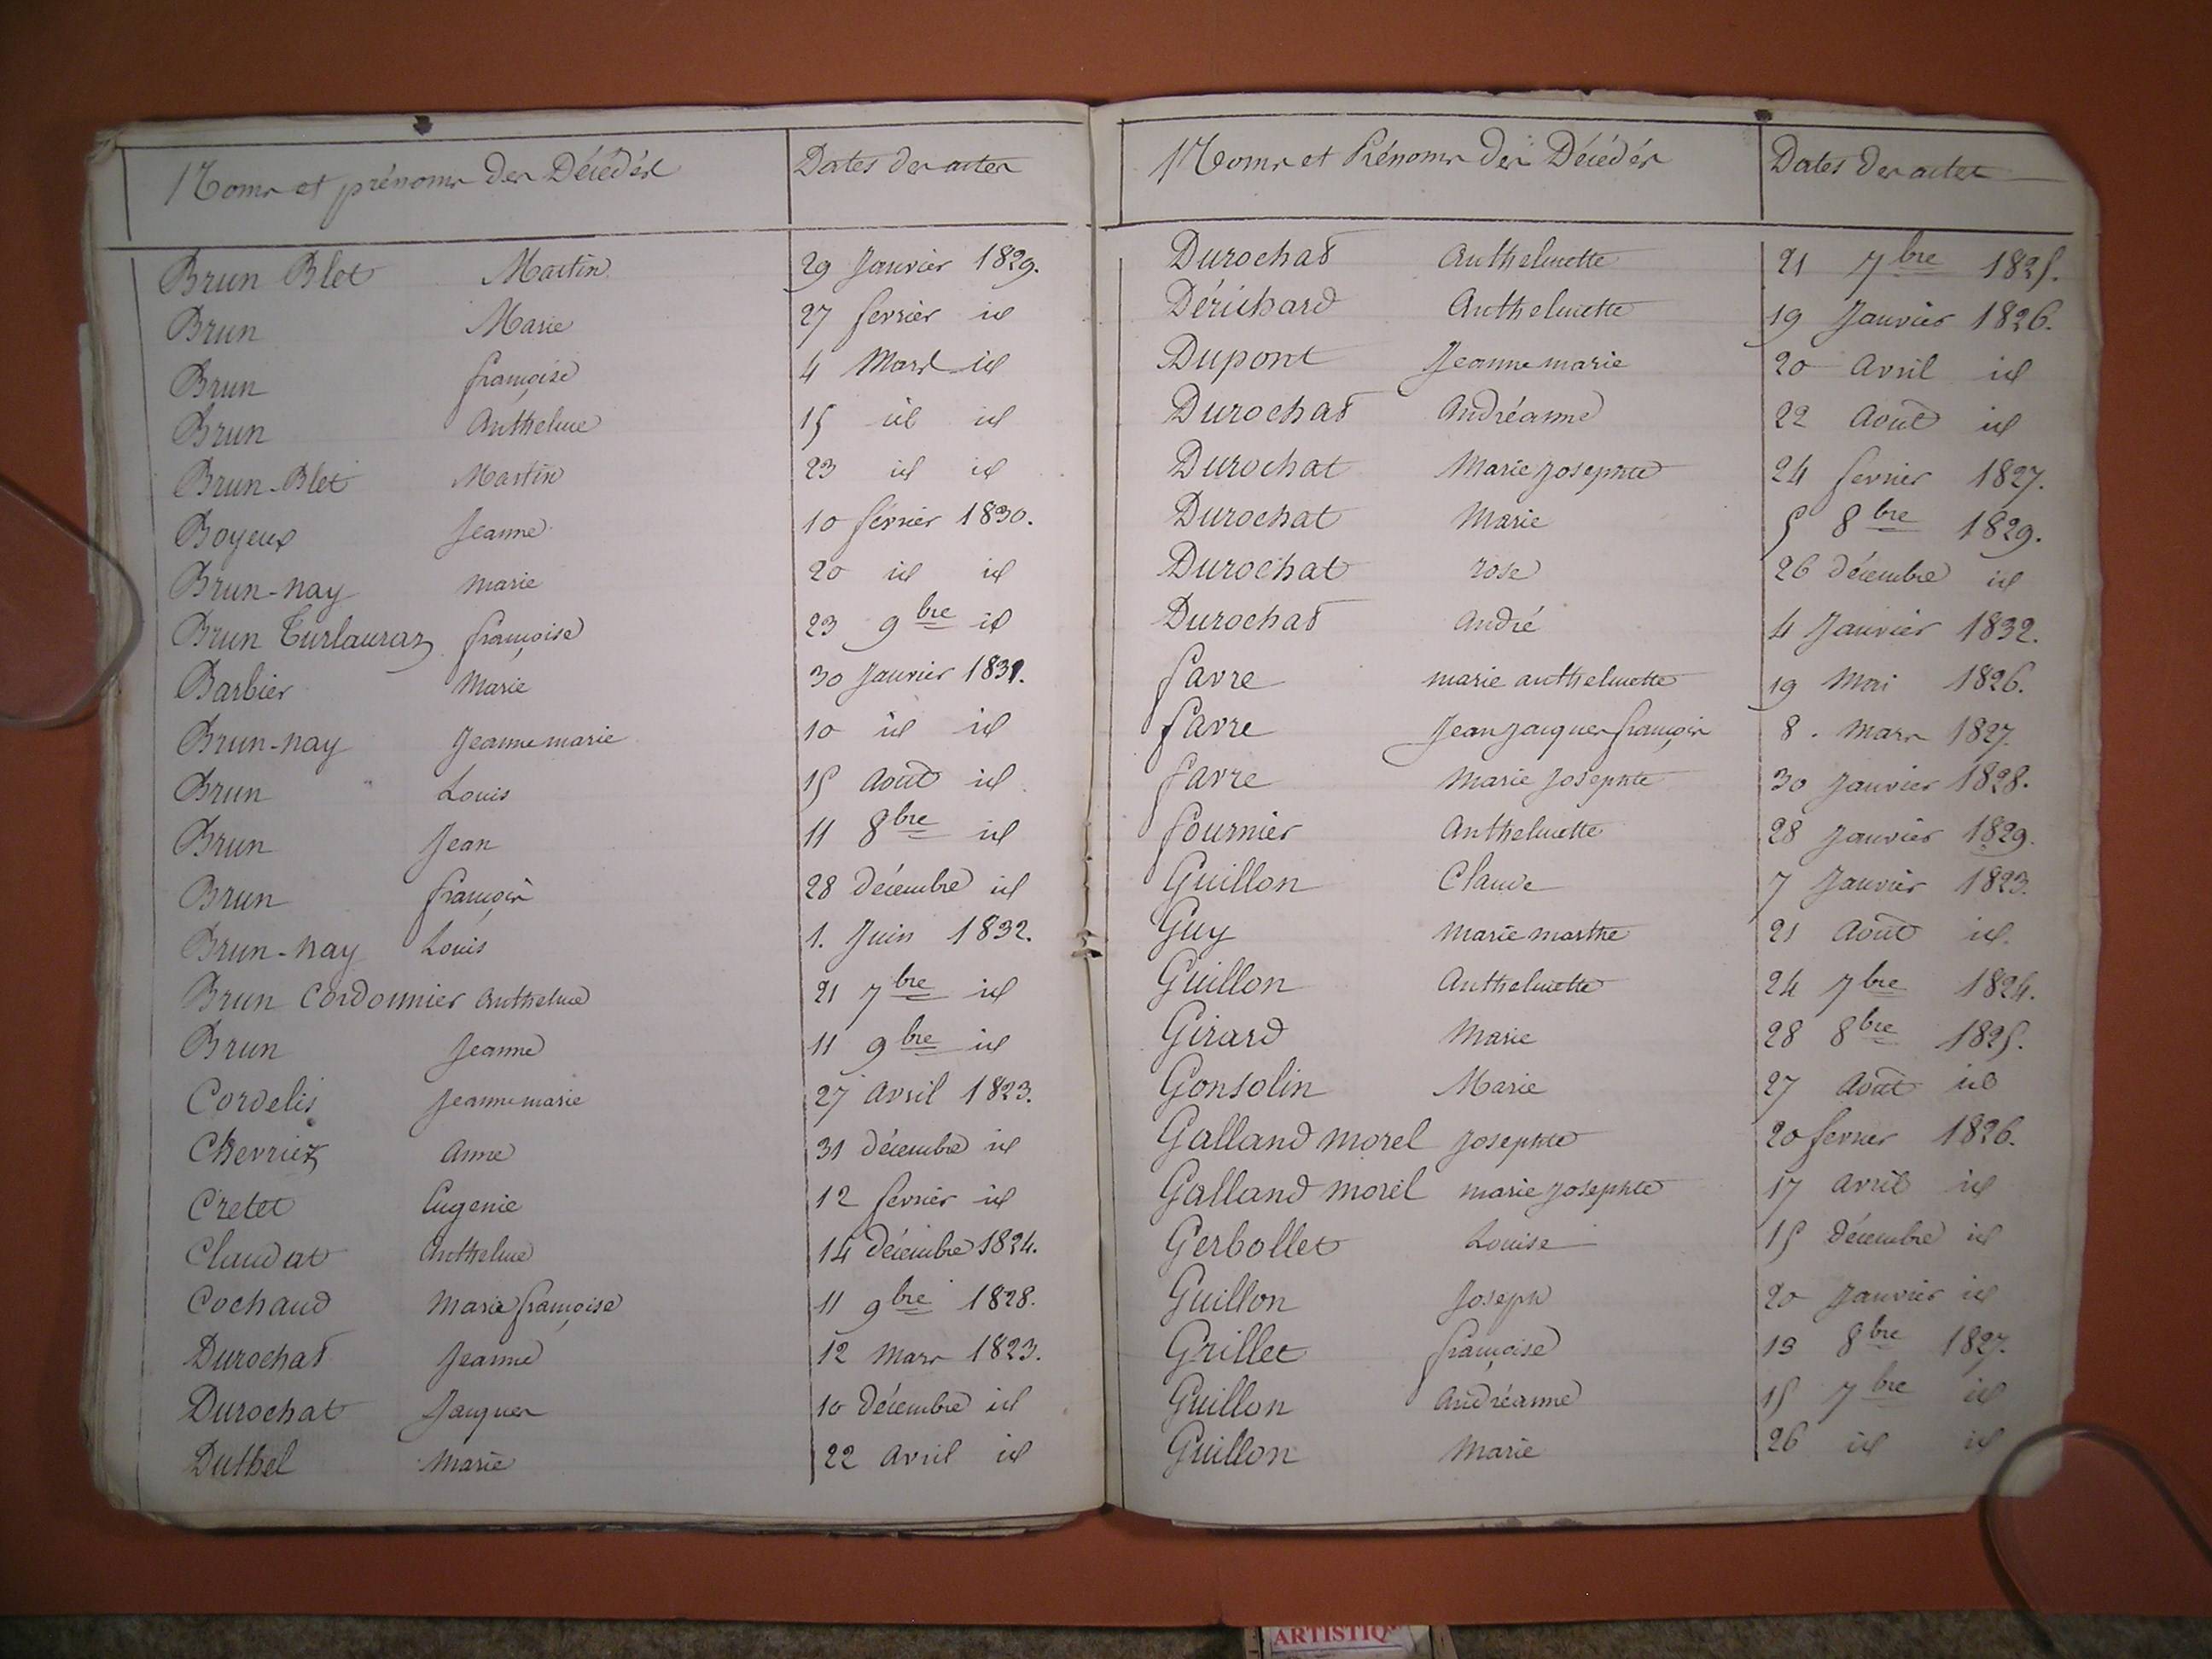 Noms et prénoms des Décédés Dates des actes
Brun Blet Martin 29 Janvier 1829.
Brun Marie 27 fevrier id
Brun françoise 4 Mars id
Brun Anthelme 15 id id
Brun-Blet Martin 23 id id
Boyeux Jeanne 10 février 1830.
Brun-nay marie 20 id id
Brun Turlauraz françoise 23 9bre id
Barbier Marie 30 Janvier 1831.
Brun-nay Jeanne marie 10 id id
Brun Louis 15 Août id
Brun Jean 11 8bre id
Brun françois 28 Décembre id
Brun-nay Louis 1. Juin 1832.
Brun Cordonnier Anthelme 21 7bre id
Brun Jeanne 11 9bre id
Cordelis Jeanne marie 27 avril 1823.
Chevriez Anne 31 décembre id
Cretet Eugenie 12 fevrier id
Claudat Anthelme 14 Décembre 1824.
Cochaud Marie françoise 11 9bre 1828.
Durochat Jeanne 12 Mars 1823.
Durochat Jacques 10 Décembre id
Duthel Marie 22 avril id
Noms et Prénoms des Décédés Dates des actes
Durochat Anthelmette 21 7bre 1825.
Dérichard Anthelmette 19 Janvier 1826.
Dupont Jeanne marie 20 Avril id
Durochat Andréanne 22 Août id
Durochat Marie Josephte 24 fevrier 1827.
Durochat Marie 5 8bre 1829.
Durochat rose 26 décembre id
Durochat André 4 Janvier 1832.
favre marie anthelmette 19 Mai 1826.
favre Jean Jacques françois 8. mars 1827.
favre Marie Josephte 30 Janvier 1828.
fournier Anthelmette 28 Janvier 1829.
Guillon Claude 7 Janvier 1823.
Guy Marie marthe 21 Août id.
Guillon Anthelmette 24 7bre 1824.
Girard Marie 28 8bre 1825.
Gonsolin Marie 27 Août id
Galland morel Josephte 20 fevrier 1826.
Galland morel marie Josephte 17 avril id
Gerbollet Louise 15 Décembre id
Guillon Joseph 20 Janvier id
Grillet françoise 13 8bre 1827.
Guillon Andréanne 15 7bre id
Guillon Marie 26 id id
ARTISTIQ